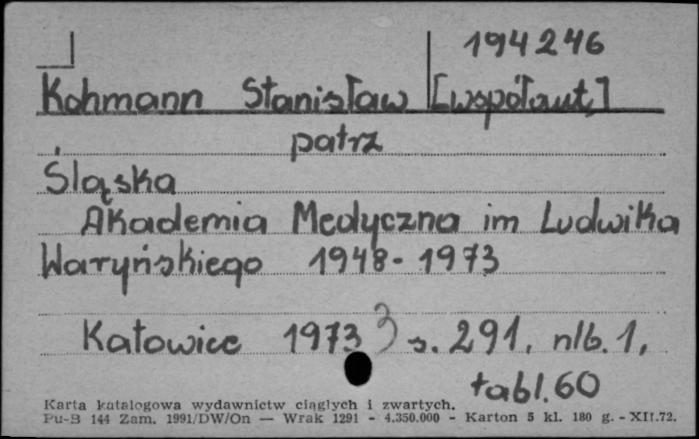 194246
Kohmann Stanisław [współaut.]
patrz
Śląska
Akademia Medyczna im Ludwika
Waryńskiego 1948-1973
Katowice 1973 s. 291, nlb. 1,
tabl. 60
Karta katalogowa wydawnictw ciągłych i zwartych.
Pu-B 144 Zam. 1991/DW/On — Wrak 1291 - 4.350.000 - Karton 5 kl. 180 g. - XII.72.